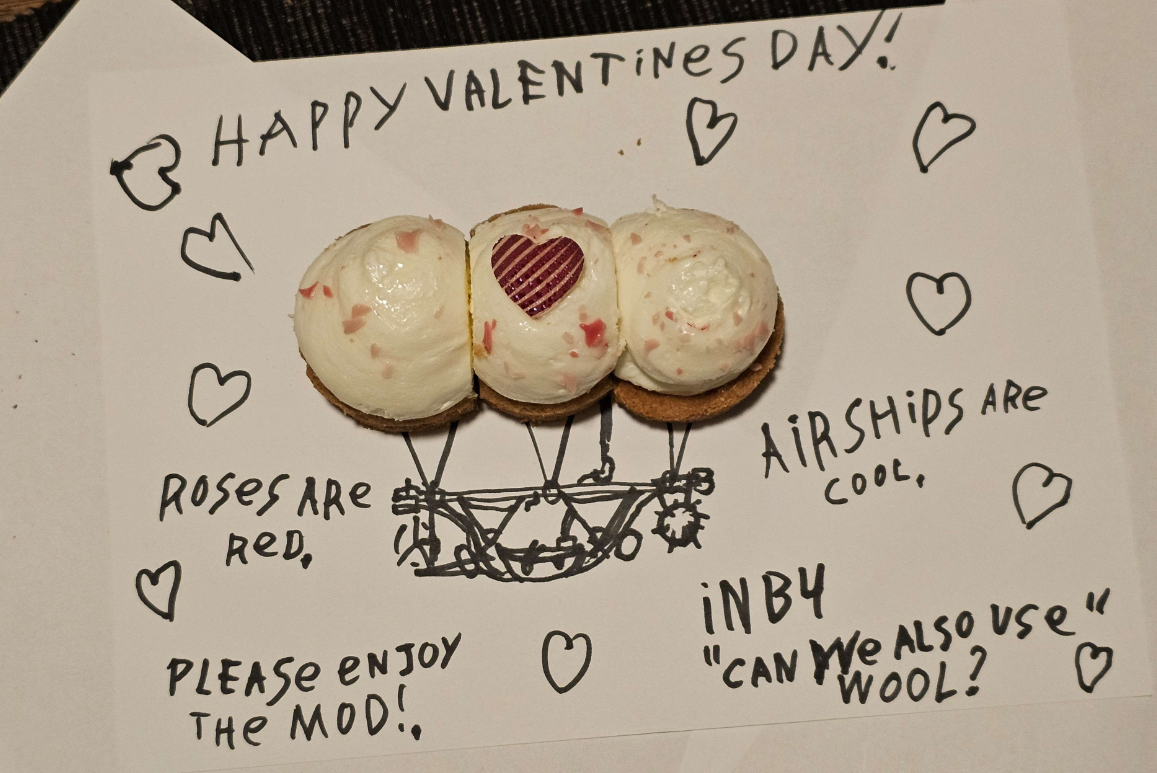 HAPPY VALENTINES DAY!
ROSES ARE
RED,
AIRSHIPS ARE
COOL,
PLEASE ENJOY
THE MOD!,
INB4
"CAN WE ALSO USE"
WOOL?